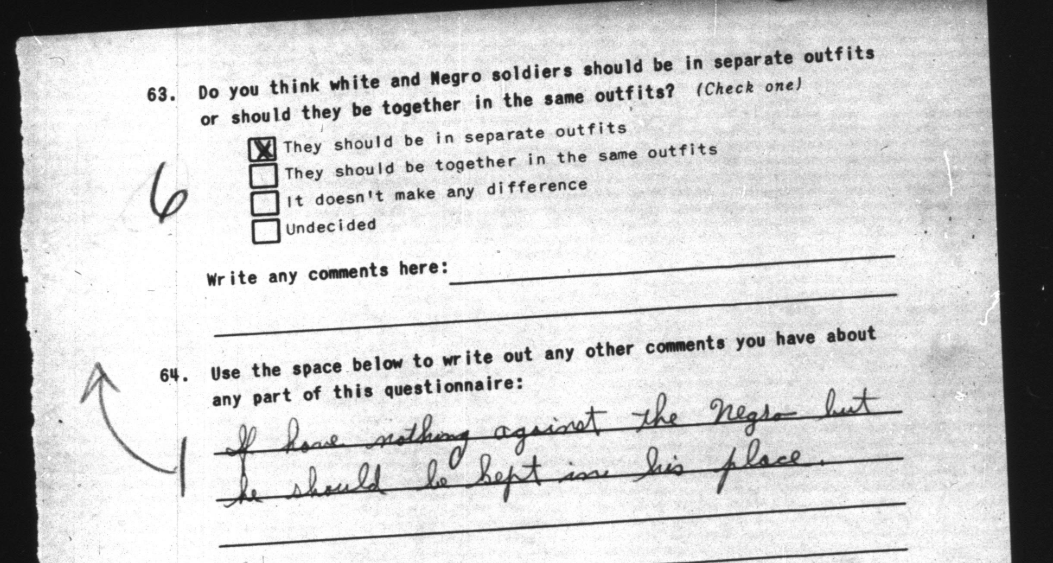 63. Do you think white and Negro soldiers should be in separate outfits
or should they be together in the same outfits? (Check one)
X They should be in separate outfits
They should be together in the same outfits
It doesn't make any difference
Undecided
6
Write any comments here:
64. Use the space below to write out any other comments you have about
any part of this questionnaire:
I have nothing against the Negro but
he should be kept in his place.